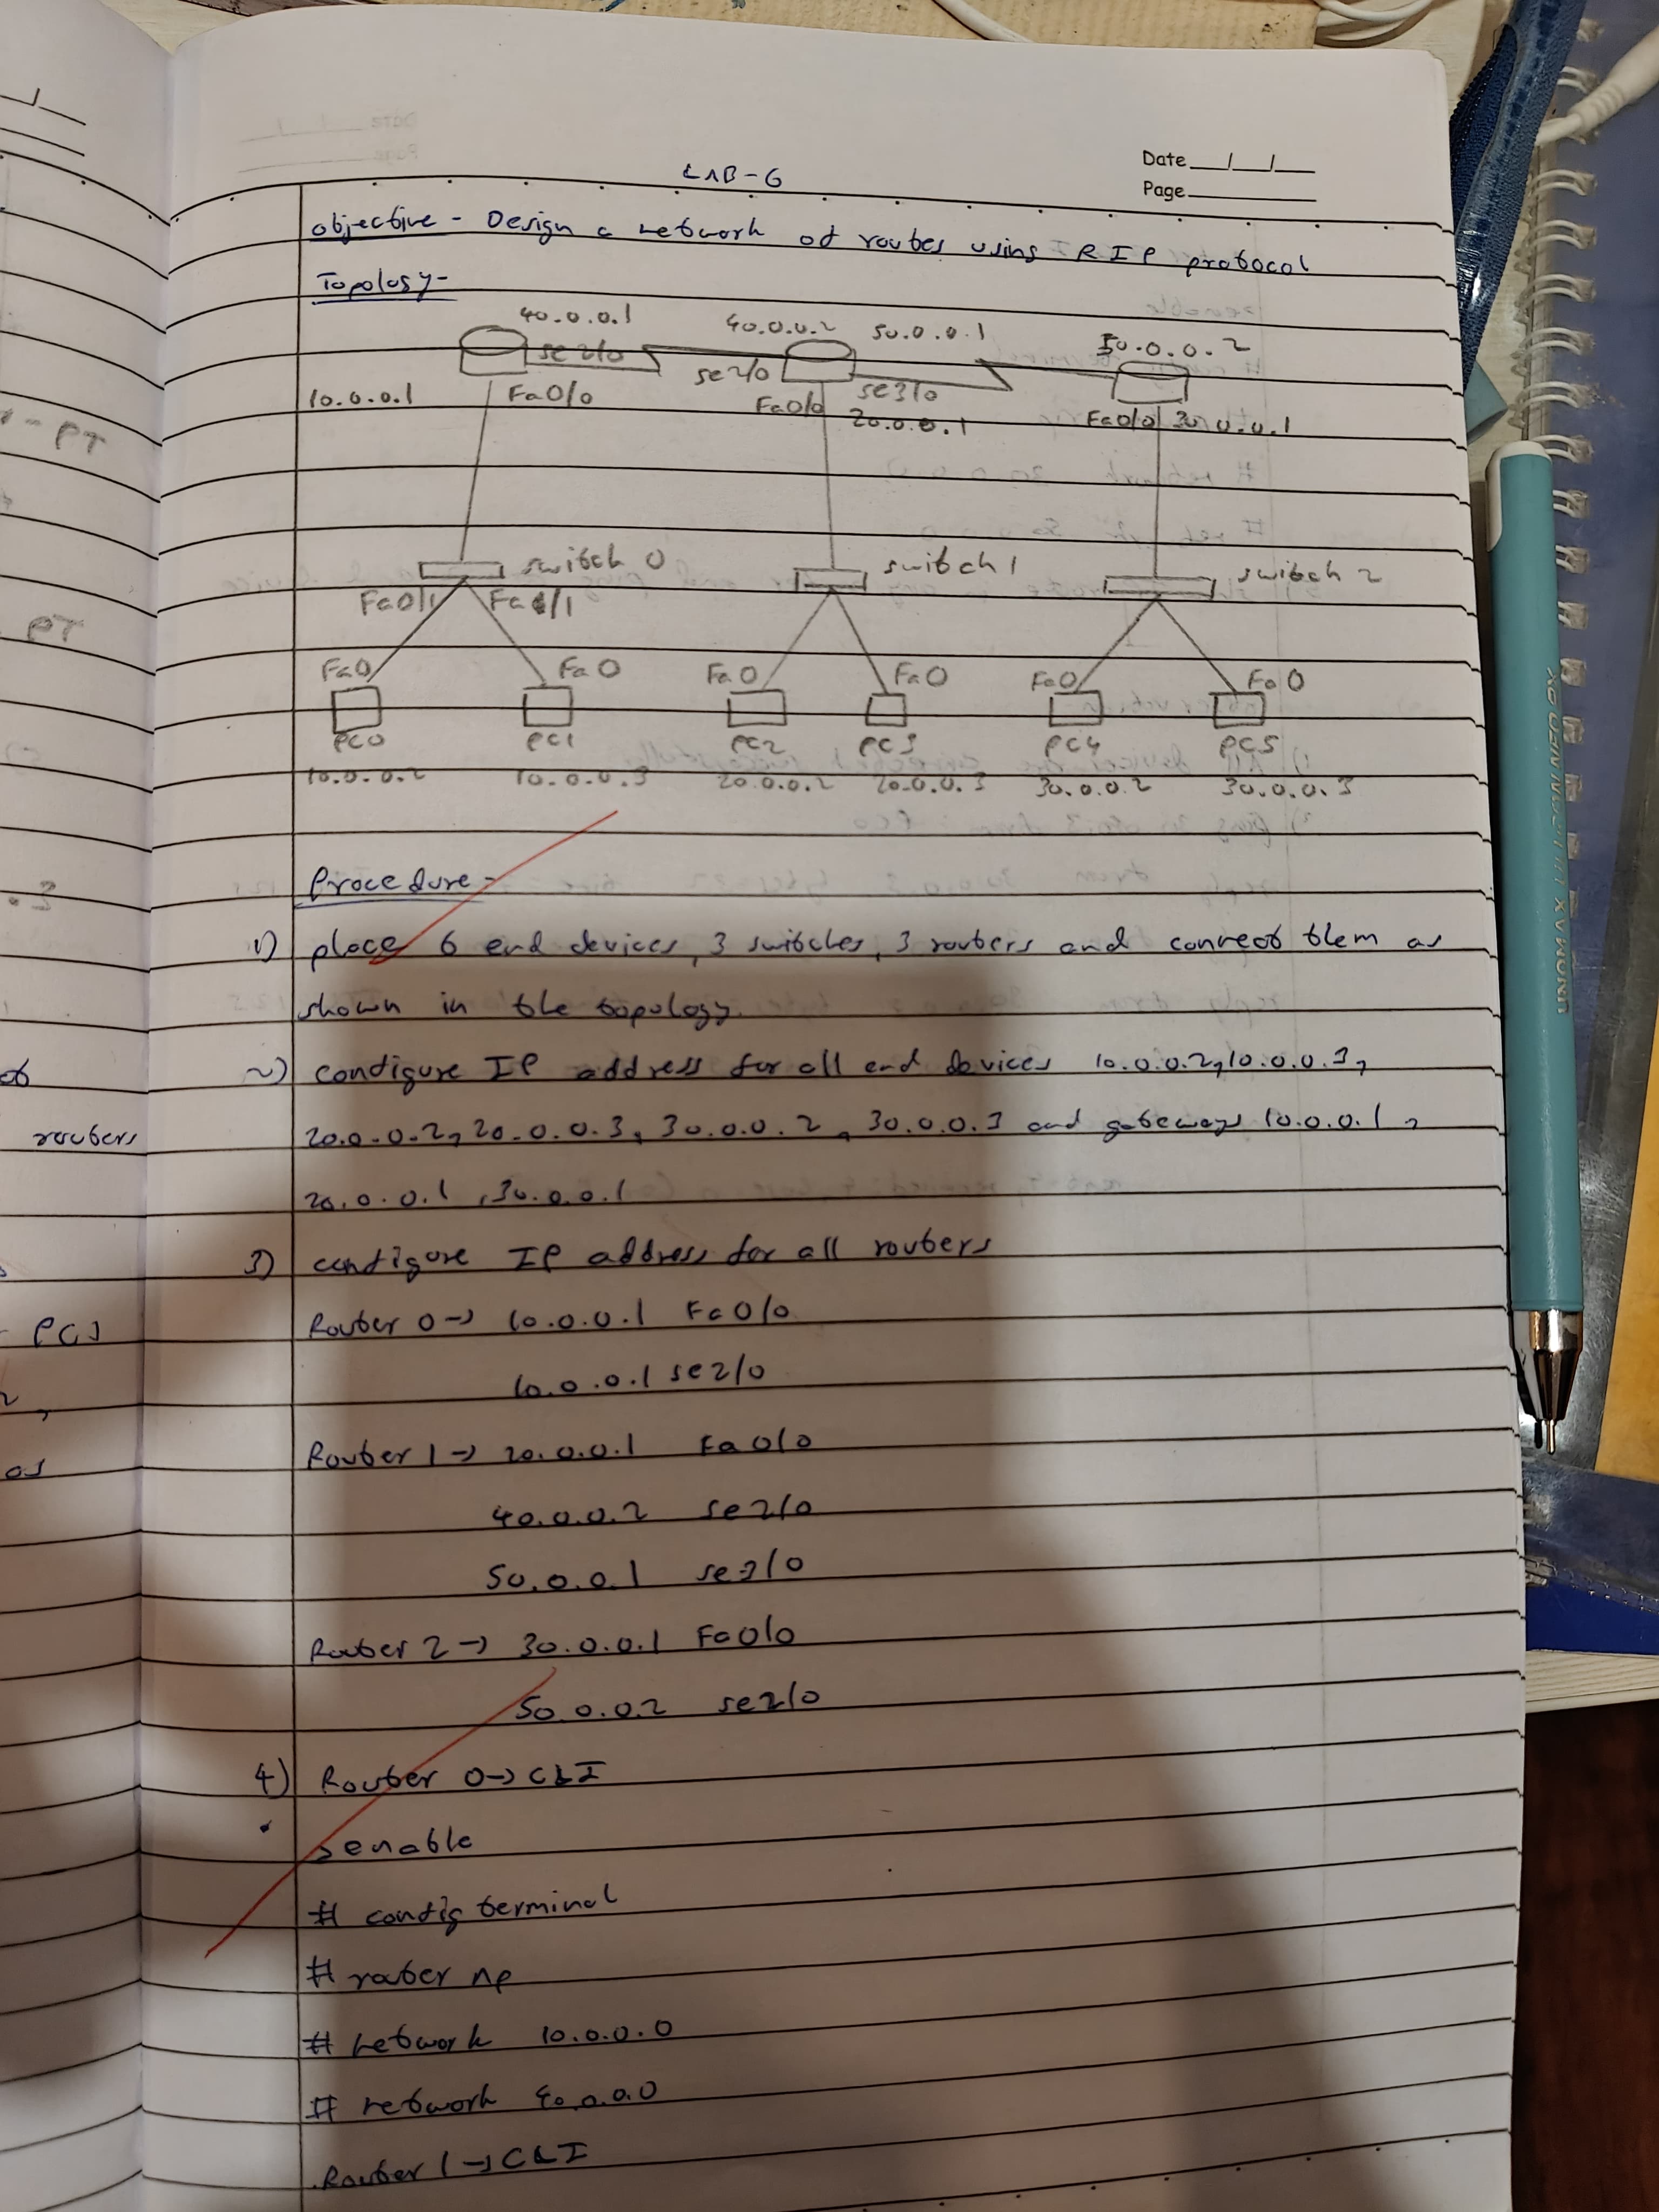 Date __/__/__
LAB-6
Page
objective - Design a network of routes using RIP protocol
Topology-
40.0.0.1 40.0.0.2 50.0.0.1 50.0.0.2
se2/0 se2/0 se3/0
10.0.0.1 Fa0/0 Fa0/0 20.0.0.1 Fa0/0 30.0.0.1
switch 0 switch 1 switch 2
Fa0/1 Fa1/1
Fa0 Fa0 Fa0 Fa0 Fa0 Fa0
PC0 PC1 PC2 PC3 PC4 PC5
10.0.0.2 10.0.0.3 20.0.0.2 20.0.0.3 30.0.0.2 30.0.0.3
Procedure-
1) place 6 end devices, 3 switches, 3 routers and connect them as
shown in the topology.
2) configure IP address for all end devices 10.0.0.2, 10.0.0.3,
20.0.0.2, 20.0.0.3, 30.0.0.2, 30.0.0.3 and gateways 10.0.0.1,
20.0.0.1, 30.0.0.1
3) configure IP address for all routers
Router 0 → 10.0.0.1 Fa0/0
10.0.0.1 se2/0
Router 1 → 20.0.0.1 Fa0/0
40.0.0.2 se2/0
50.0.0.1 se3/0
Router 2 → 30.0.0.1 Fa0/0
50.0.0.2 se2/0
4) Router 0 → CLI
>enable
# config terminal
# router rip
# network 10.0.0.0
# network 40.0.0.0
Router 1 → CLI
PT
PT
routers
PCs
as
XWONN